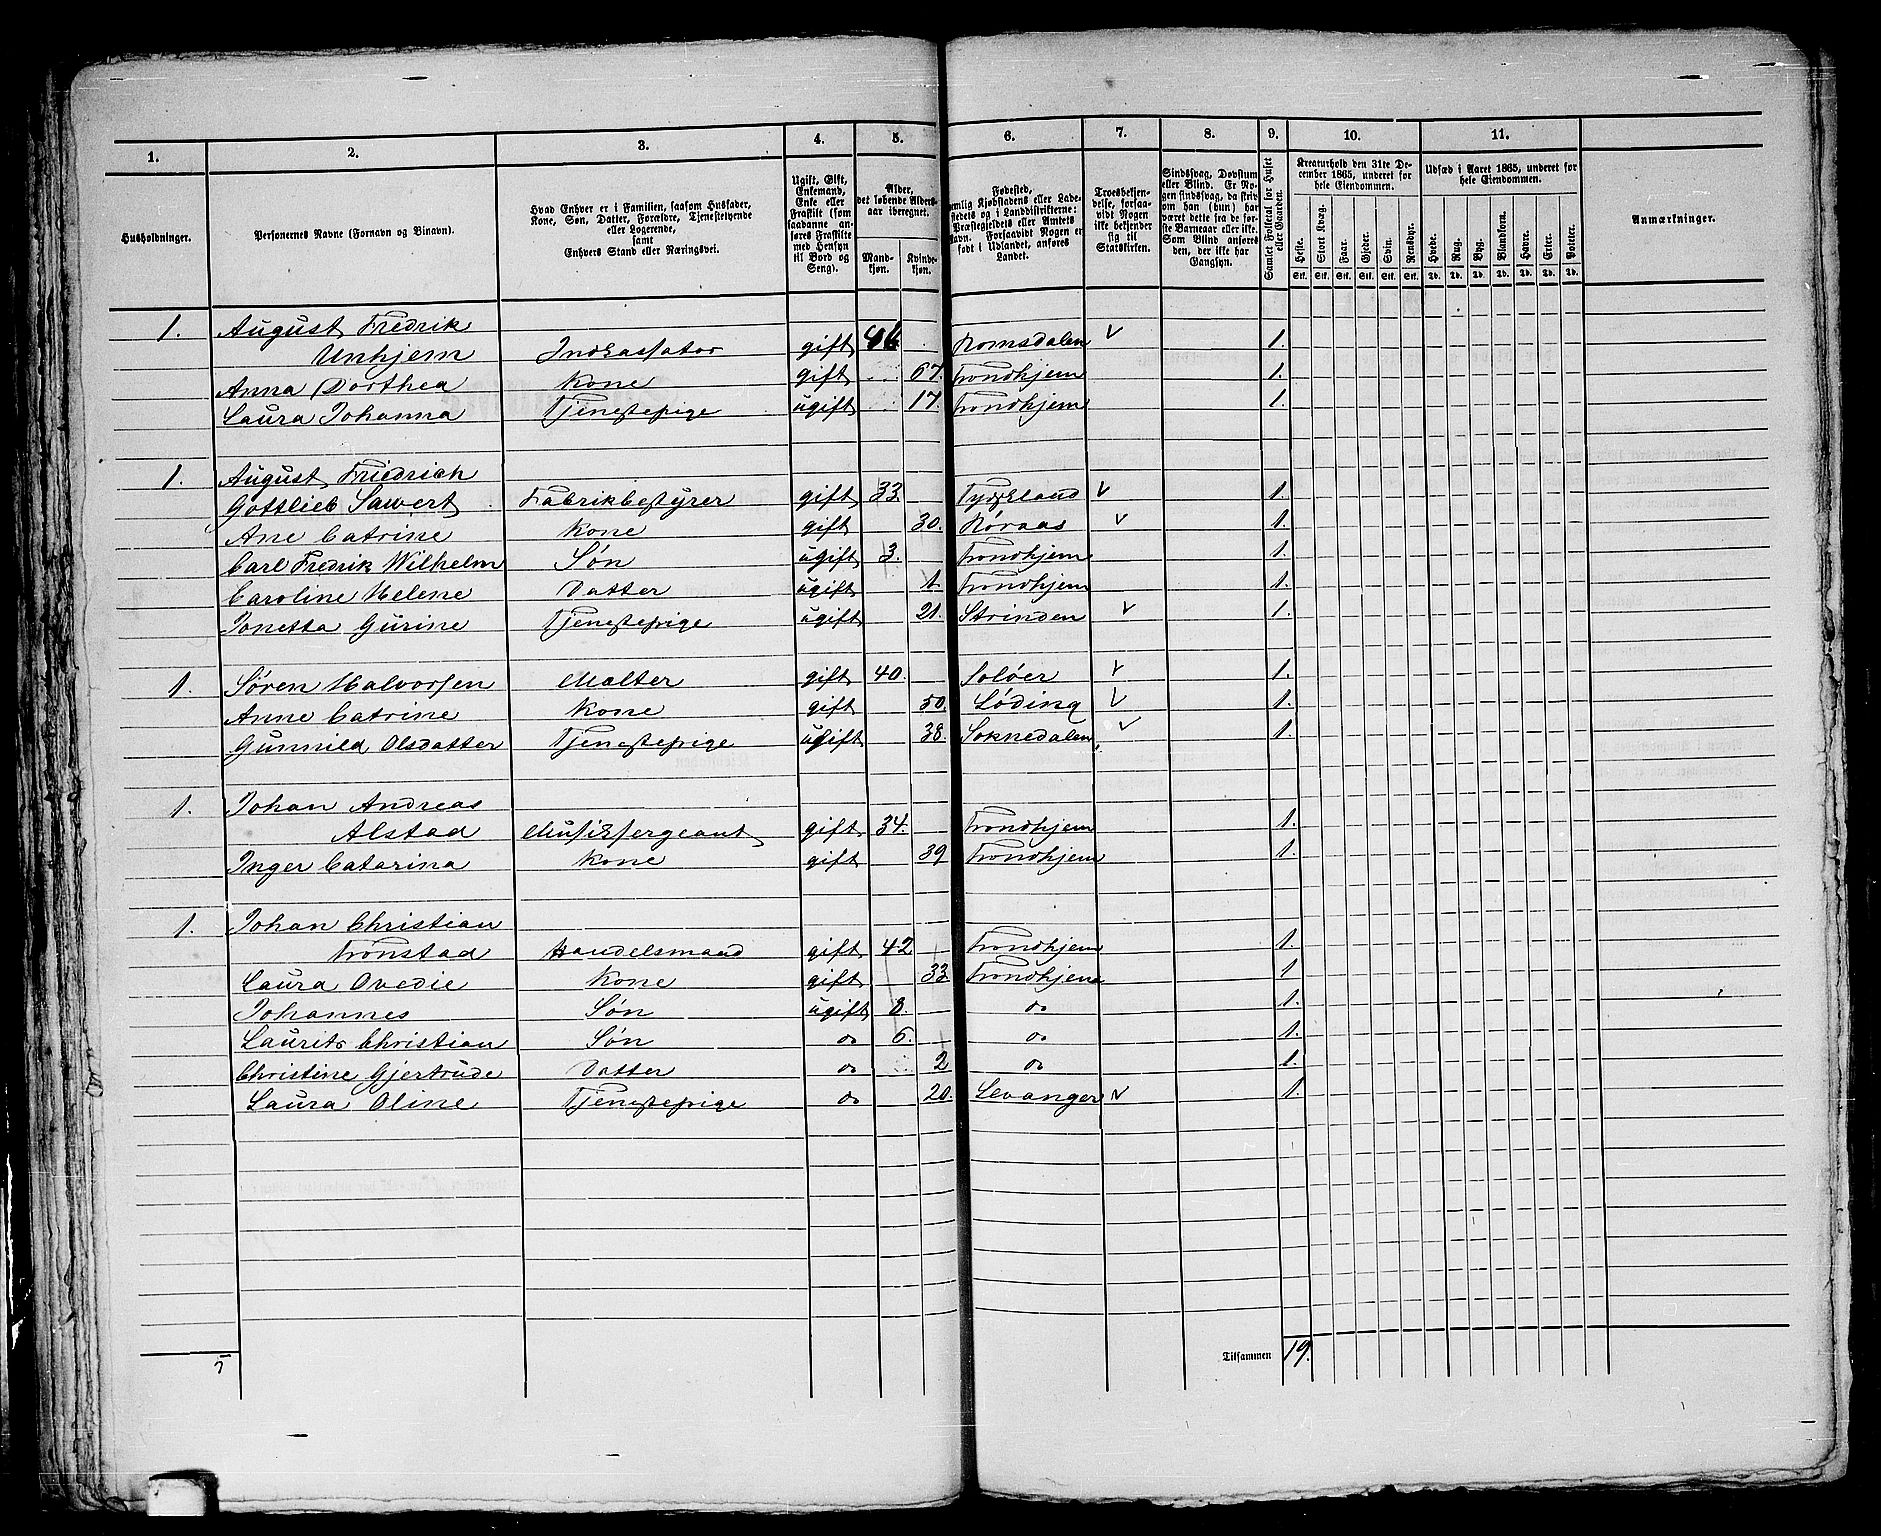 1. 2. 3. 4. 5. 6. 7. 8. 9. 10. 11.
Husholdninger.
Personernes Navne (Fornavn og Binavn).
Hvad Enhver er i Familien, saasom Husfader, Kone, Søn, Datter, Forældre, Tjenestetyende eller Logerende, samt Enhvers Stand eller Næringsvei.
Ugift, Gift, Enkemand, Enke eller Fraskilt (som saadanne anføres Fraskilte med Hensyn til Bord og Seng).
Alder, det løbende Aldersaar iberegnet.
Mandkjøn. Kvindekjøn.
Fødested, nemlig Kjøbstadens eller Ladestedets og i Landdistrikterne: Præstegjeldets eller Amtets Navn. Forsaavidt Nogen er født i Udlandet, anføres Landet.
Troesbekjendelse, forsaavidt Nogen ikke bekjender sig til Statskirken.
Sindssvag, Døvstum eller Blind. Er Nogen sindssvag, da skriv om han (hun) har været dette fra de første Barneaar eller ikke. Som Blind anføres den, der ikke har Gangsyn.
Samlet Folketal for Huset eller Gaarden.
Kreaturhold den 31te December 1865, underet for hele Eiendommen.
Heste. Stort Kvæg. Faar. Gjeder. Svin. Rensdyr.
Stk. Stk. Stk. Stk. Stk. Stk.
Udsæd i Aaret 1865, underet for hele Eiendommen.
Hvede. Rug. Byg. Blandkorn. Havre. Erter. Poteter.
Td. Td. Td. Td. Td. Td. Td.
Anmærkninger.
1. August Fredrik
Unhjem Indkassator gift Romsdalen 1.
Anna Dorthea Kone gift 67. Trondhjem 1.
Laura Johanna Tjenestepige ugift 17. Trondhjem 1.
1. August Friedrich
Gottlieb Sawert Fabrikbestyrer gift 33 Tydskland 1.
Ane Catrine Kone gift 30. Røraas 1.
Carl Fredrik Wilhelm Søn ugift 3. Trondhjem 1.
Caroline Helene Datter ugift 1. Trondhjem 1.
Jonetta Gurine Tjenestepige ugift 21. Strinden 1.
1. Søren Halvorsen Malter gift 40. Soløer 1.
Anne Catrine Kone gift 50. Løding 1.
Gunnild Olsdatter Tjenestepige ugift 38. Soknedalen 1.
1. Johan Andreas
Alstad Musiksergeant gift 34. Trondhjem 1.
Inger Catarina Kone gift 39 Trondhjem 1.
1. Johan Christian
Trønstad Handelsmand gift 42 Trondhjem 1.
Laura Ovedie Kone gift 33 Trondhjem 1
Johannes Søn ugift 8. do 1.
Laurits Christian Søn do 6. do 1.
Christine Gjertrude Datter do 2 do 1.
Laura Oline Tjenestepige do 20. Levanger 1.
5 Tilsammen 19.